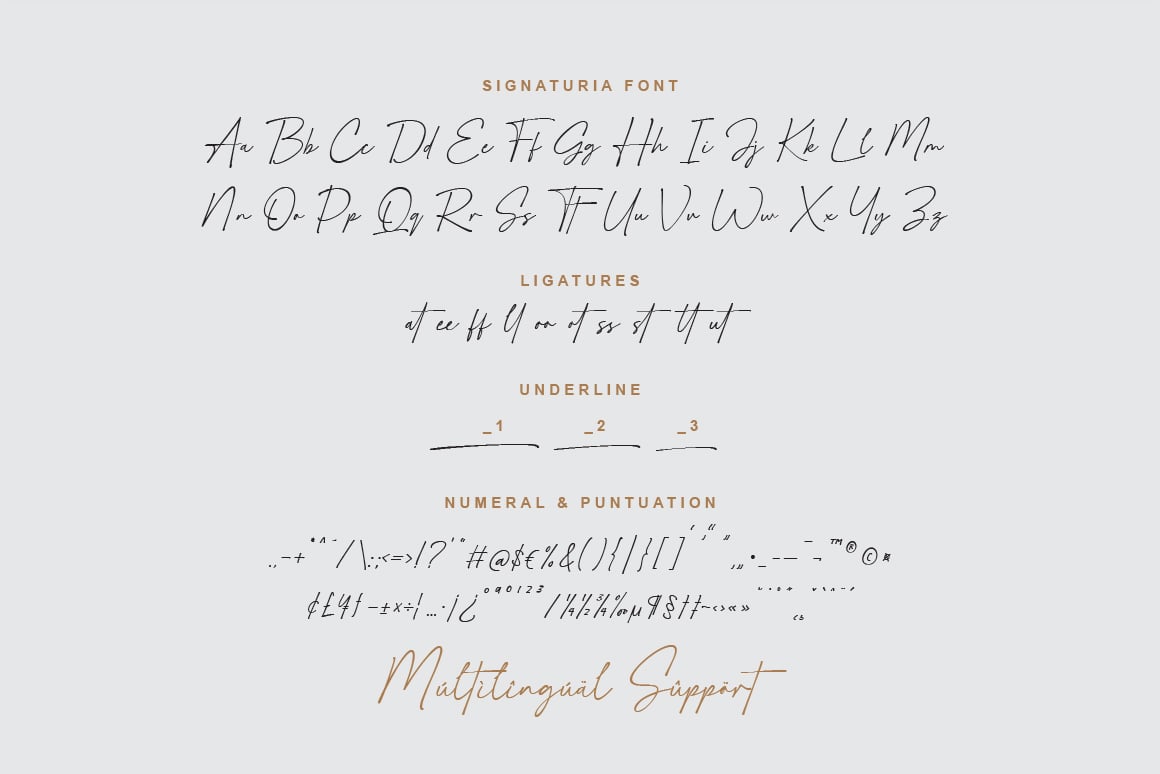 SIGNATURIA FONT
Aa Bb Cc Dd Ee Ff Gg Hh Ii Jj Kk Ll Mm
Nn Oo Pp Qq Rr Ss Tt Uu Vv Ww Xx Yy Zz
LIGATURES
at ee ff ll oo ot ss st tt ut
UNDERLINE
_1 _2 _3
NUMERAL & PUNTUATION
.,-+*^~/\:;<=>!?'"#@$€%&(){|}[]‘’“”‚„•_-—–¬™®©¤
¢£¥ƒ-±×÷¦…·¡¿ºª0123/¼½¾‰µ¶§†‡~‹›«»
Múltìlîngúäl Sûppört